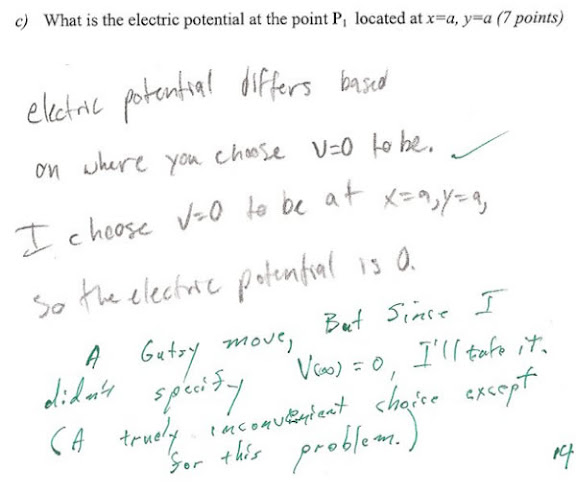 c) What is the electric potential at the point P₁ located at x=a, y=a (7 points)
electric potential differs based
on where you choose V=0 to be. ✓
I choose V=0 to be at x=a, y=a,
so the electric potential is 0.
A Gutsy move, But Since I
didn't specify V(∞) = 0, I'll take it.
(A truely inconvenient choice except
for this problem.)